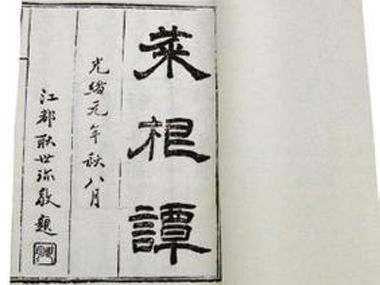 菜根譚
光緒元年秋八月
江都耿世珍敬題